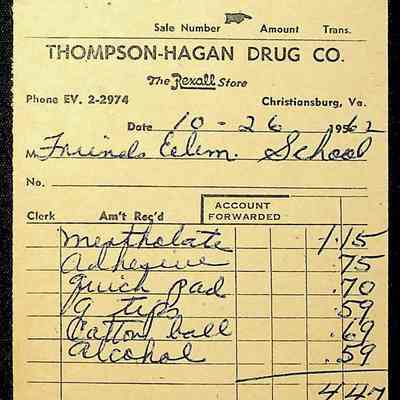 Sale Number Amount Trans.
THOMPSON-HAGAN DRUG CO.
The Rexall Store
Phone EV. 2-2974 Christiansburg, Va.
Date 10 - 26 1962
M Friends Elem. School
No.
Clerk Am't Rec'd ACCOUNT FORWARDED
Merthiolate 1.15
Adhesive .75
Quick pad .70
Q tips .59
Cotton ball .69
Alcohol .59
4 47